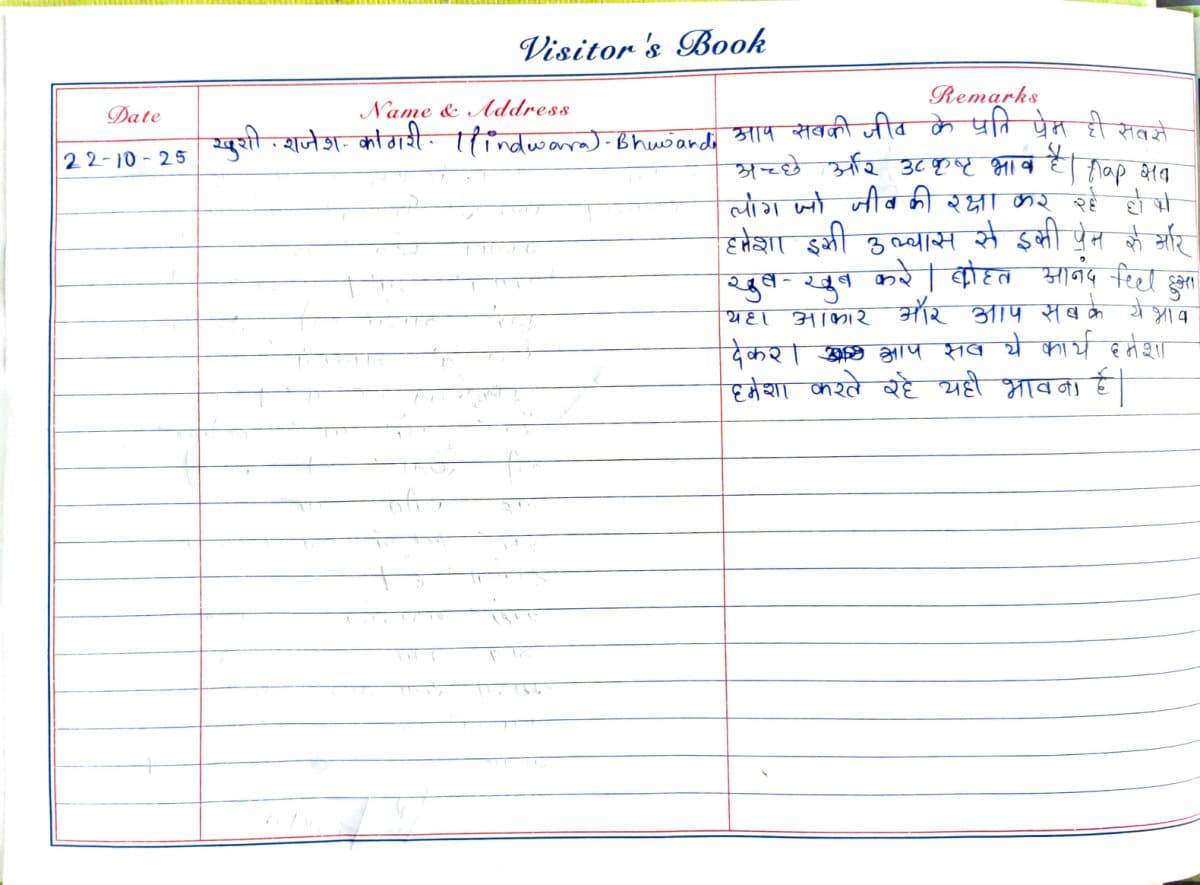 Visitor's Book
Date Name & Address Remarks
22-10-25 खुशी . राजेश . कोठारी . (Pindwara) - Bhiwandi आप सबकी जीव के प्रति प्रेम ही सबसे
अच्छे और उत्कृष्ट भाव है। आap सब
लोग जो जीव की रक्षा कर रहे हो वो
हमेशा इसी उल्लास से इसी प्रेम से और
खुब-खुब करे। बोहत आनंद feel हुआ
यहा आकार और आप सबके ये भाव
देकर। आप सब ये कार्य हमेशा
हमेशा करते रहे यही भावना है।